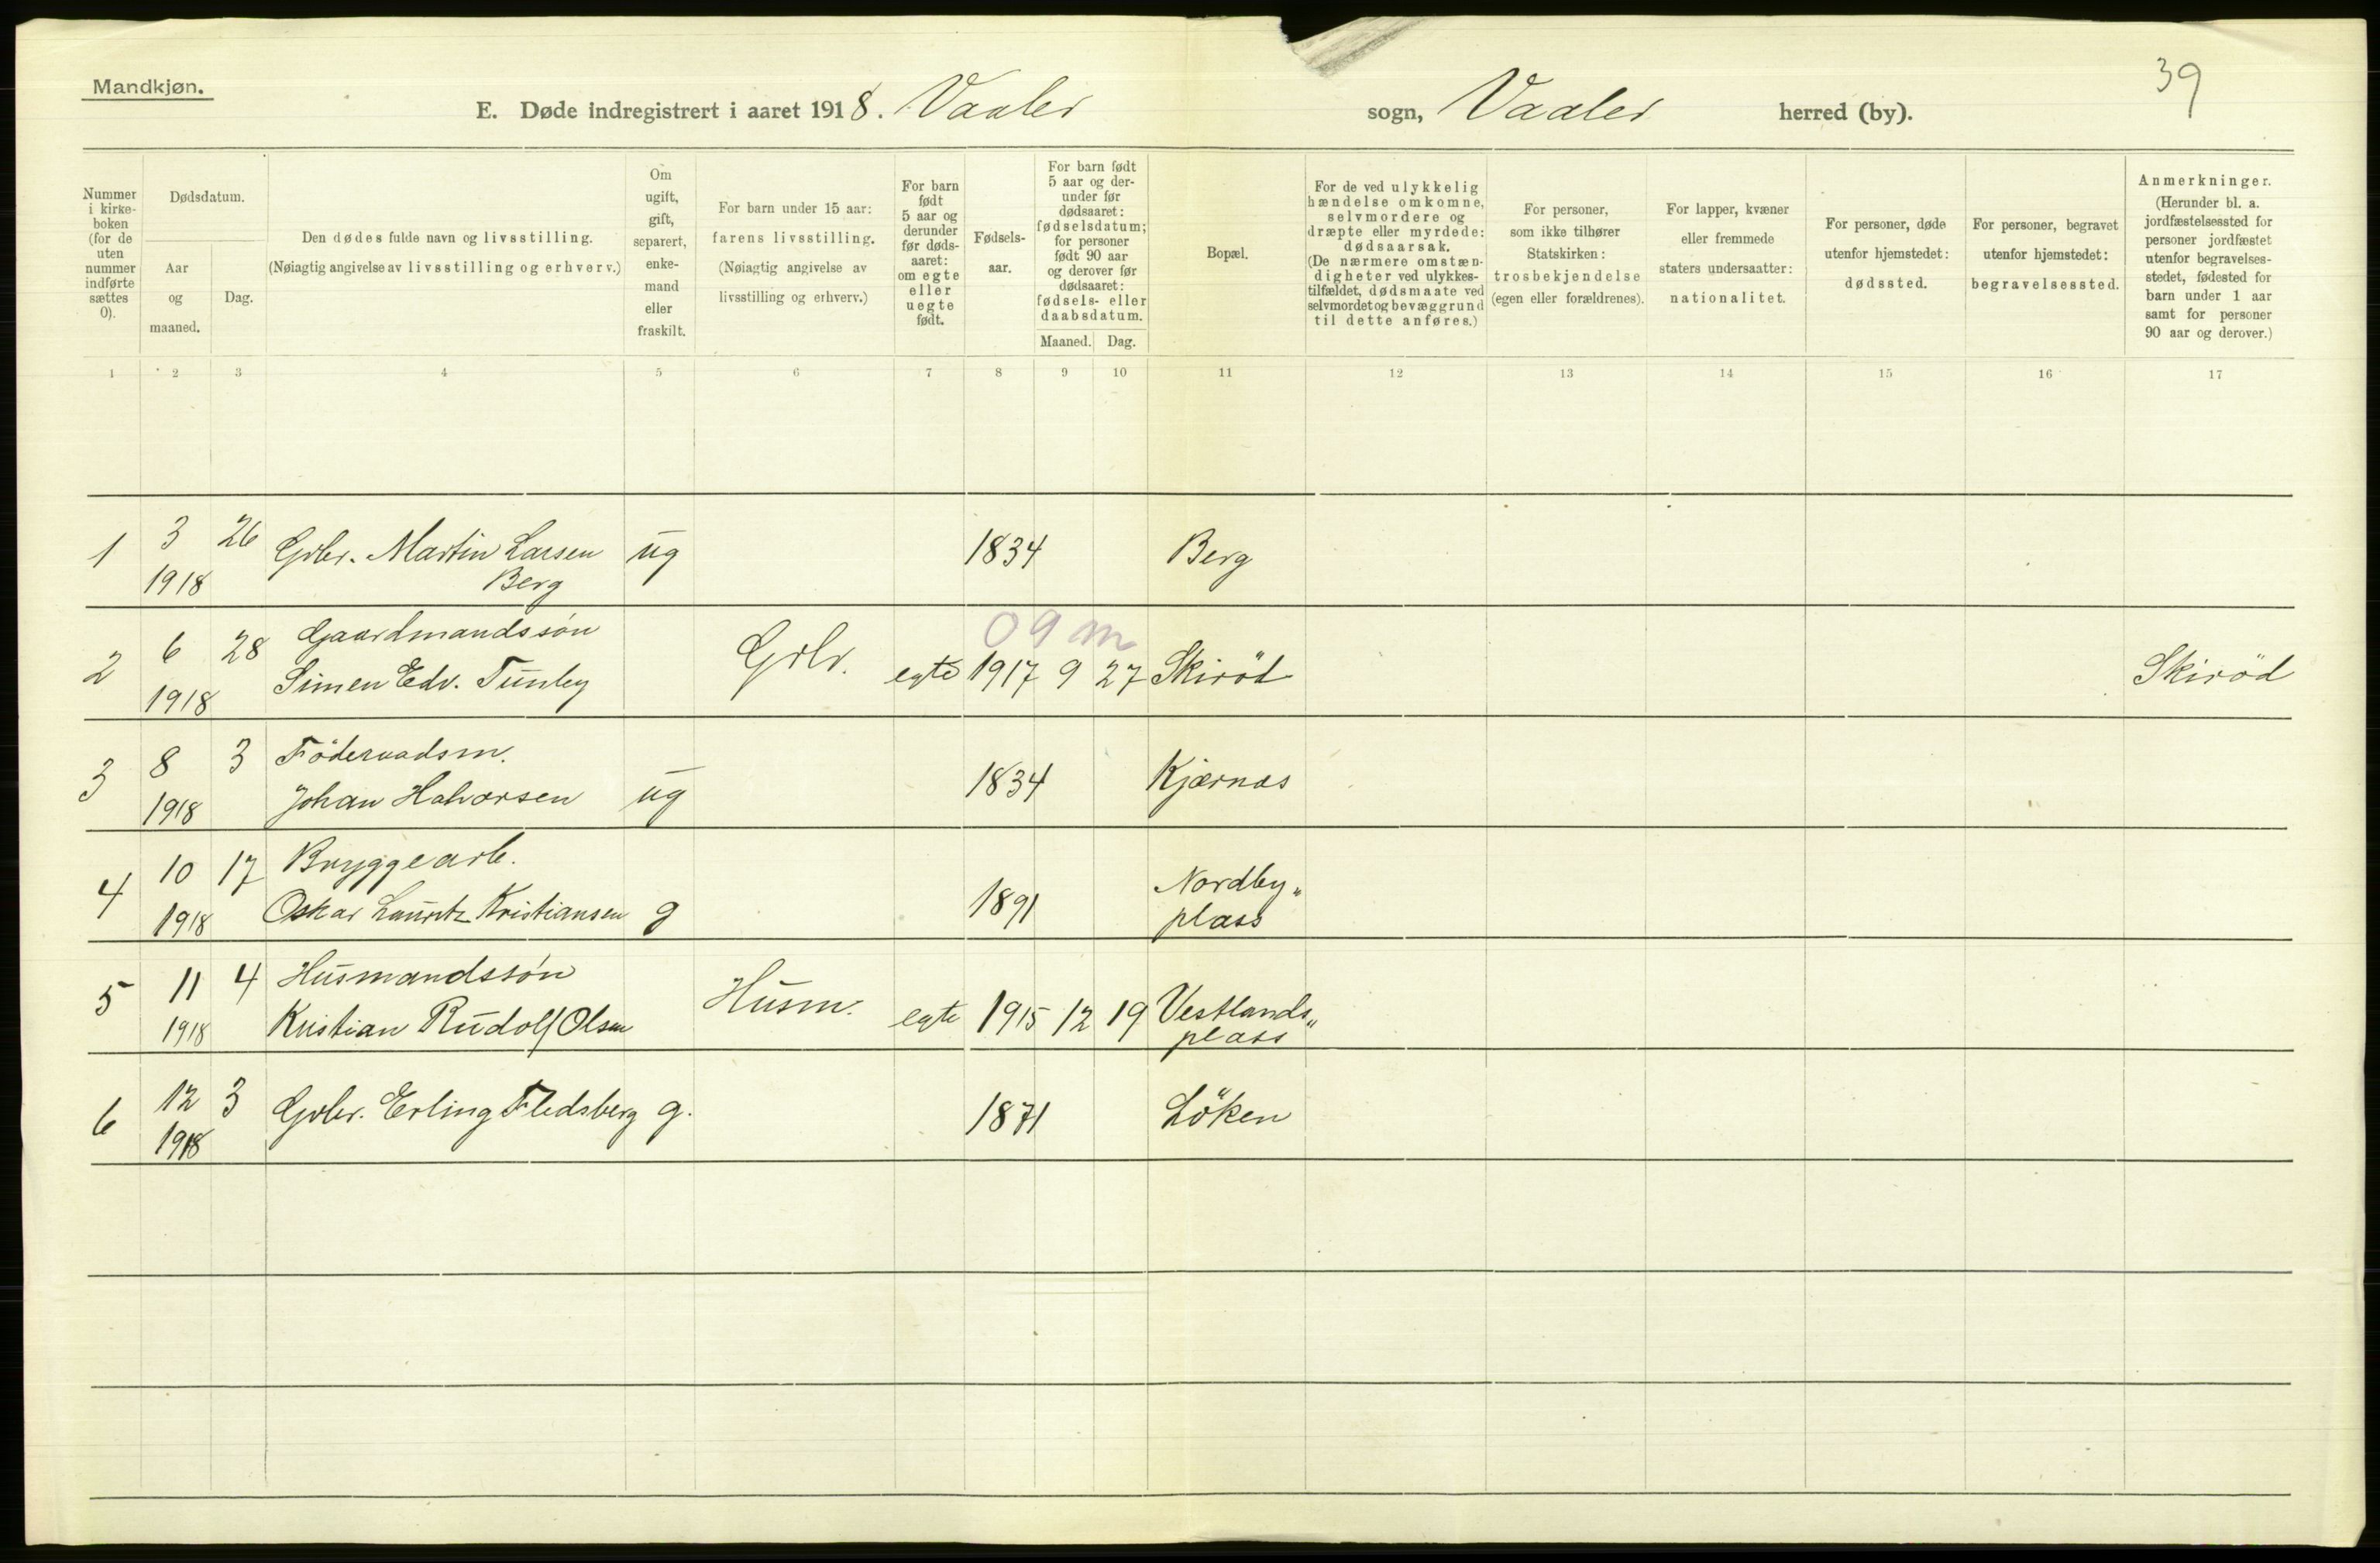 39
Mandkjøn.
E. Døde indregistrert i aaret 1918. Vaaler sogn, Vaaler herred (by).
Nummer
i kirke-
boken
(for de
uten
nummer
indførte
sættes
0).
Dødsdatum.
Aar
og
maaned.
Dag.
Den dødes fulde navn og livsstilling.
(Nøiagtig angivelse av livsstilling og erhverv.)
Om
ugift,
gift,
separert,
enke-
mand
eller
fraskilt.
For barn under 15 aar:
farens livsstilling.
(Nøiagtig angivelse av
livsstilling og erhverv.)
For barn
født
5 aar og
derunder
før døds-
aaret:
om egte
eller
uegte
født.
Fødsels-
aar.
For barn født
5 aar og der-
under før
dødsaaret:
fødselsdatum;
for personer
født 90 aar
og derover før
dødsaaret:
fødsels- eller
daabsdatum.
Maaned. Dag.
Bopæl.
For de ved ulykkelig
hændelse omkomne,
selvmordere og
dræpte eller myrdede:
dødsaarsak.
(De nærmere omstæn-
digheter ved ulykkes-
tilfældet, dødsmaate ved
selvmordet og bevæggrund
til dette anføres.)
For personer,
som ikke tilhører
Statskirken:
trosbekjendelse
(egen eller forældrenes).
For lapper, kvæner
eller fremmede
staters undersaatter:
nationalitet.
For personer, døde
utenfor hjemstedet:
dødssted.
For personer, begravet
utenfor hjemstedet:
begravelsessted.
Anmerkninger.
(Herunder bl. a.
jordfæstelsessted for
personer jordfæstet
utenfor begravelses-
stedet, fødested for
barn under 1 aar
samt for personer
90 aar og derover.)
1 2 3 4 5 6 7 8 9 10 11 12 13 14 15 16 17
1 3 26 Grbr. Martin Larsen ug 1834 Berg
1918 Berg
09 m
2 6 28 Gaardmandssön Grbr.
1918 Simen Edv. Tunby egte 1917 9 27 Skiröd Skiröd
3 8 3 Föderaadsm.
1918 Johan Halvorsen ug 1834 Kjærnas
4 10 17 Bryggearb. Nordby„
1918 Oskar Lauritz Kristiansen g 1891 plass
5 11 4 Husmandssön Husm.
1918 Kristian Rudolf Olsen egte 1915 12 19 Vestlands„
plass
6 12 3 Grbr. Erling Fledsberg g. 1871 Löken
1918